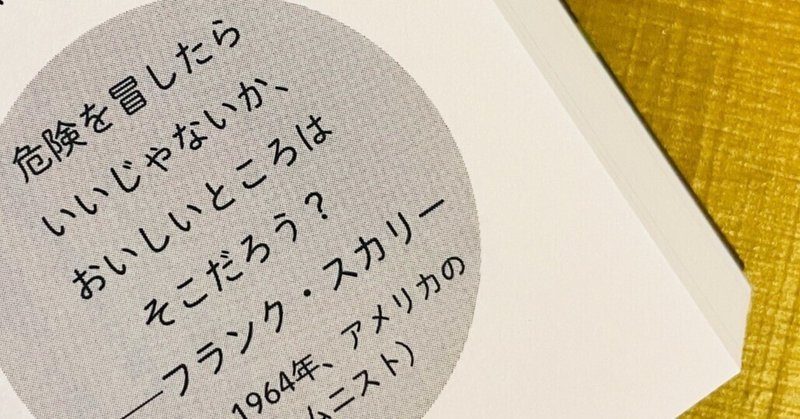 危険を冒したら
いいじゃないか、
おいしいところは
そこだろう?
──フランク・スカリー
1964年、アメリカの
ムニスト)